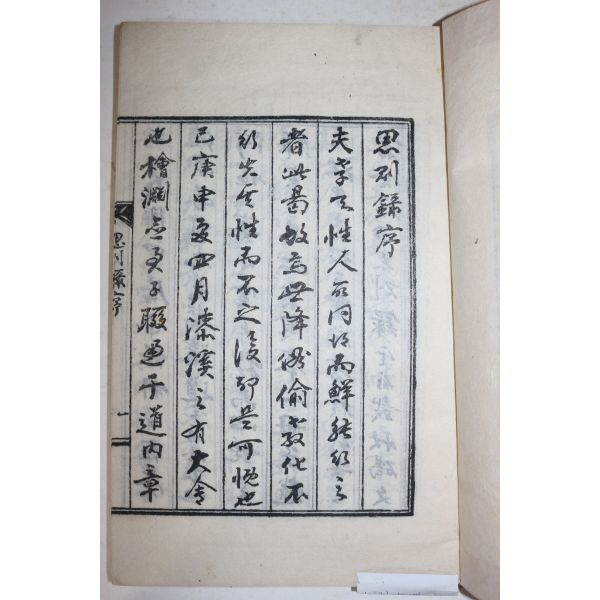 思列錄序
夫孝天性人所同得而鮮能行之
者此曷故焉世降俗偷教化不
行失其性而不之復却是可慨也
已庚申夏四月漆溪之有大會
也檜淵 子 通于道內章
思列錄序
一